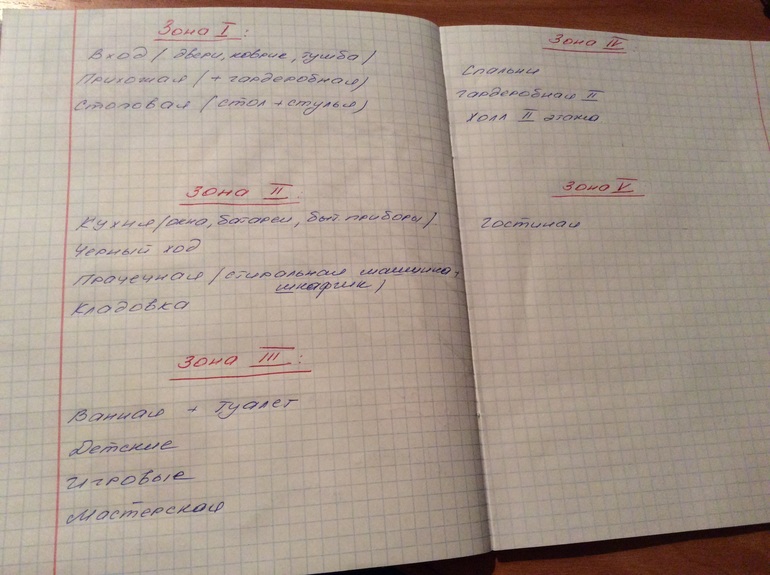 Зона I:
Вход (двери, коврик, тумба)
Прихожая (+ гардеробная)
Столовая (стол + стулья)
Зона II:
Кухня (окна, батареи, быт. приборы)
Черный ход
Прачечная (стиральная машина,
шкафчик)
Кладовка
Зона III:
Ванная + туалет
Детские
Игровые
Мастерская
Зона IV
Спальни
гардеробная II
Холл II этажа
Зона V
Гостиная